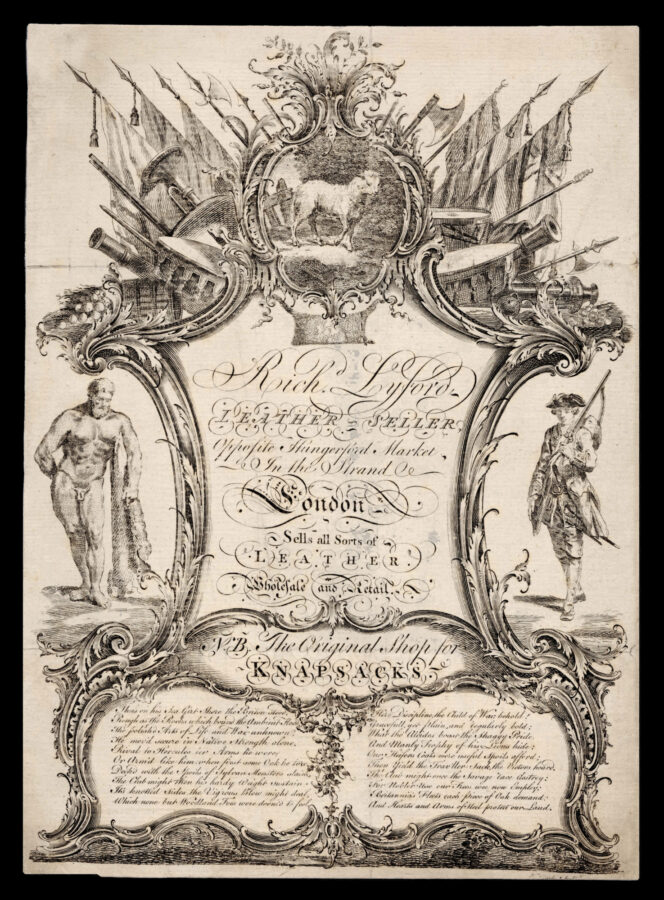 Rich. Lyford
LEATHER-SELLER,
Opposite Hungerford Market,
In the Strand
London
Sells all Sorts of
LEATHER.
Wholesale and Retail.
NB. The Original Shop for
KNAPSACKS.
Thus on his Sea Girt Shore the Briton stood
Rough as the Rocks which bound the Ambient Flood
The polish'd Arts of Life and War unknown;
He in Native Strength alone,
Rival to Hercules in Arms he wore,
Or Arm'd like him when first some Oak he tore
Deck'd with the Spoils of Sylvan Monsters slain
The Club might then his hardy Weight sustain
His knotted the Vig'rous blow might deal
Which none but Woodland Foes were doom'd to feel
Here Discipline, the Child of War behold;
Gracefull, yet plain, and regularly bold;
What tho' Alcides boast the Shaggy Pride,
And Manly Trophy of his Lions hide;
Our Heifers Calls more usefull Spoils afford;
Thou Gold the Trav'ller Such the Victors hoard,
Tho' One might once the Savage race destroy;
For Nobler Use our now Employ;
Britannia's Fleets each piece of Oak demand;
And Hearts and Arms of Steel protect our Land.